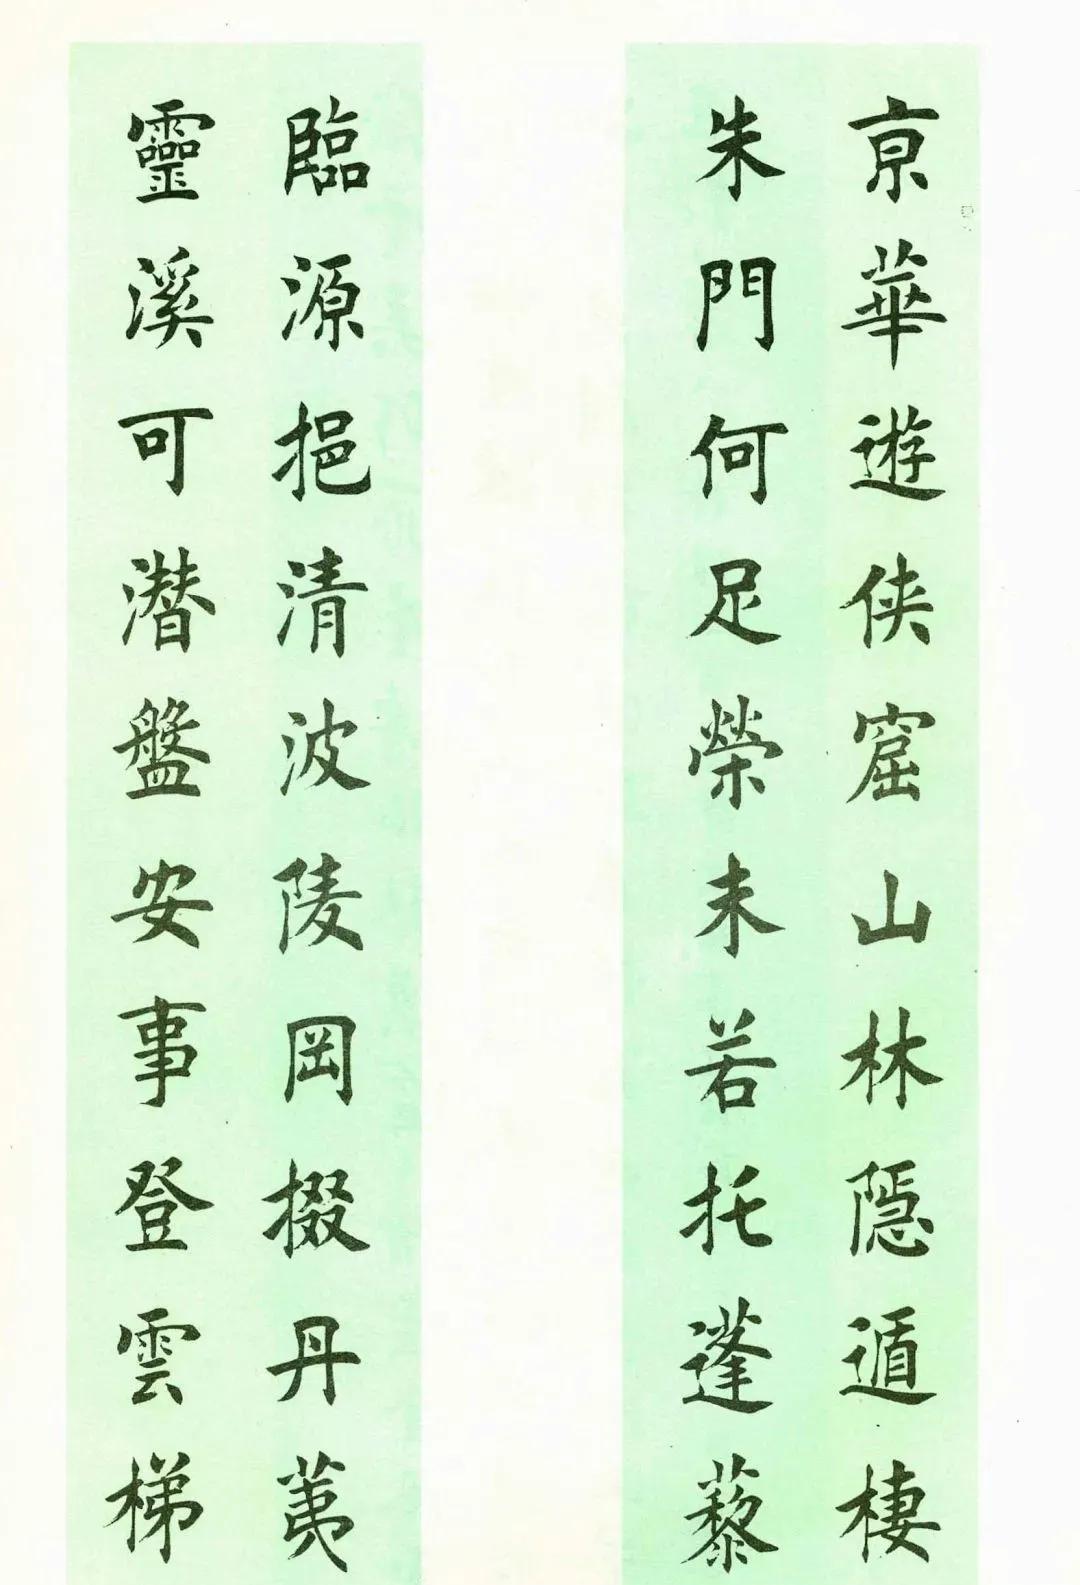 京華遊侠窟山林隱遁棲
朱門何足榮未若托蓬藜
臨源挹清波陵岡掇丹荑
靈溪可潜盤安事登雲梯